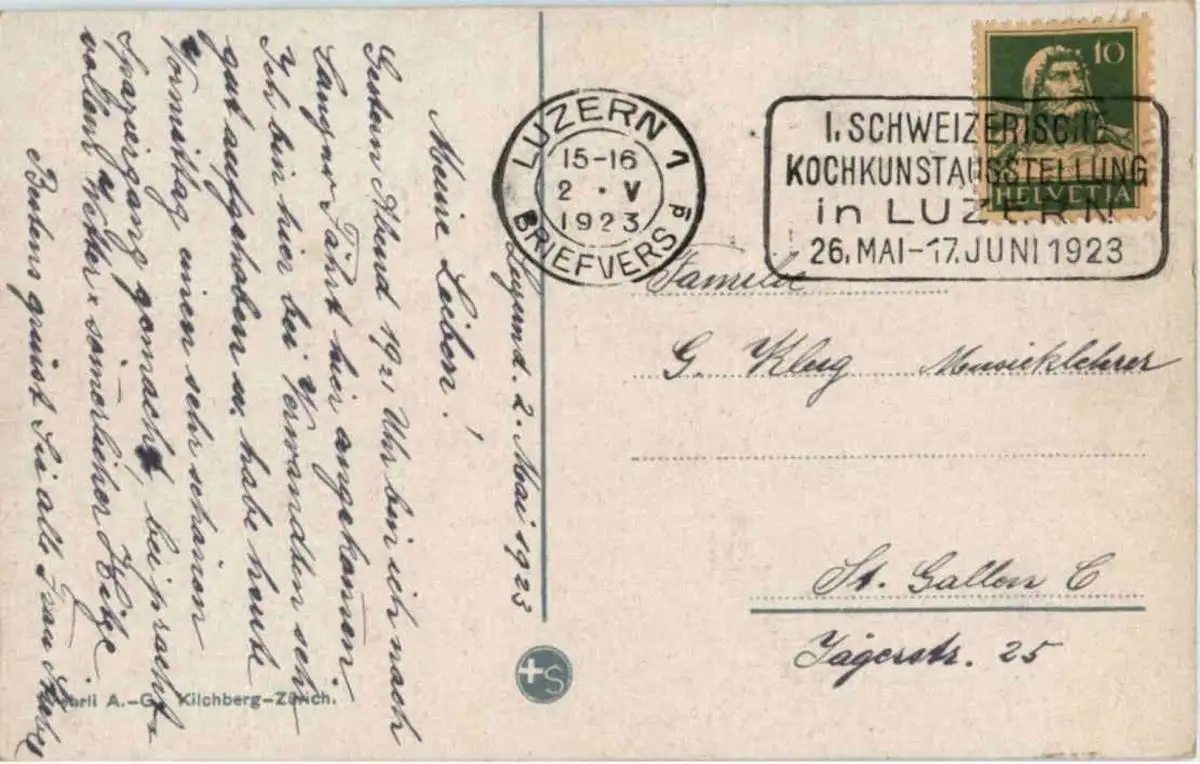 Luzern. 2. Mai 1923
Meine Lieben!
Gestern Abend 19²¹ Uhr bin ich nach
langer Fahrt hier angekommen
Ich bin hier bei Verwandten sehr
gut aufgehoben u. habe heute
Vormittag einen sehr schönen
Spaziergang gemacht, bei pracht-
vollem Wetter x sömerlicher Hitze
Bestens grüsst Sie alle Frau
A.-G. Kilchberg-Zürich.
+S
LUZERN 1
15-16
2 . V
1923
BRIEFVERS
10
HELVETIA
I. SCHWEIZERISCHE
KOCHKUNSTAUSSTELLUNG
in LUZERN
26. MAI-17. JUNI 1923
Familie
G. Klug Musicklehrer
St. Gallen C
Jägerstr. 25